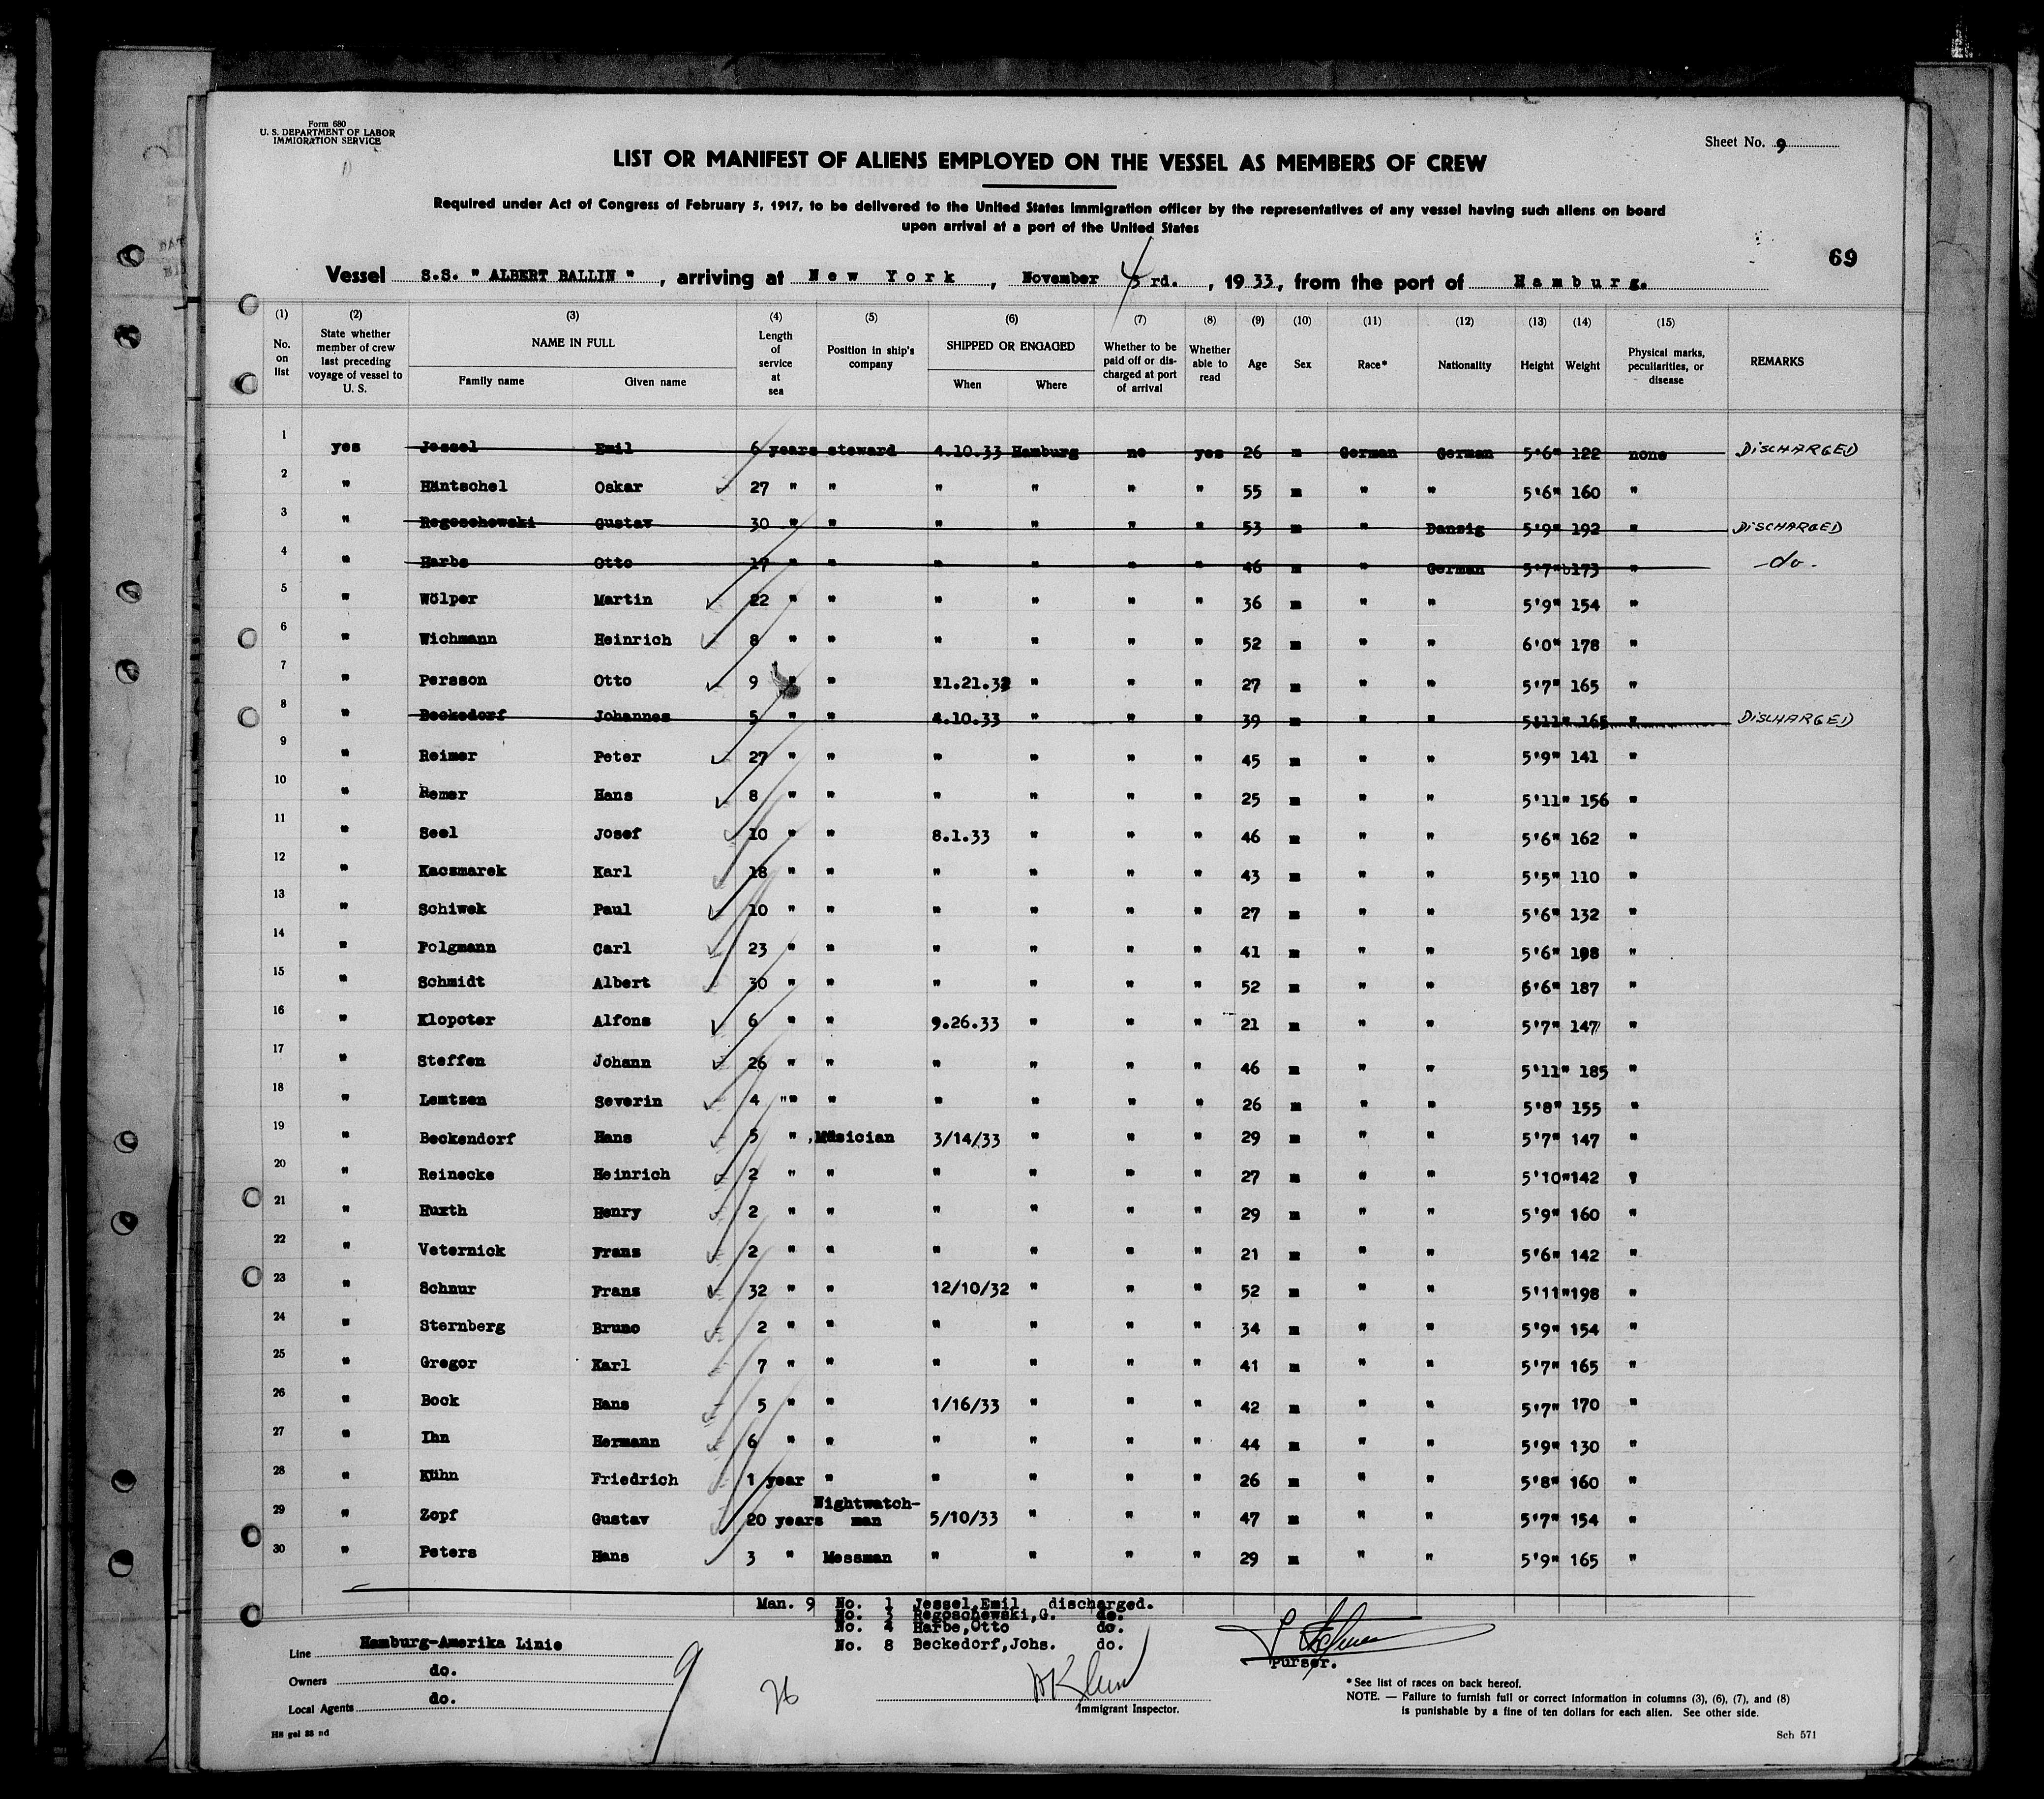 Form 680
U. S. DEPARTMENT OF LABOR
IMMIGRATION SERVICE
Sheet No. 9
LIST OR MANIFEST OF ALIENS EMPLOYED ON THE VESSEL AS MEMBERS OF CREW
Required under Act of Congress of February 5, 1917, to be delivered to the United States immigration officer by the representatives of any vessel having such aliens on board
upon arrival at a port of the United States
69
Vessel S.S. " ALBERT BALLIN ", arriving at New York, November 4 3rd., 1933, from the port of Hamburg.
(1) No. on list (2) State whether member of crew last preceding voyage of vessel to U. S. (3) NAME IN FULL Family name Given name (4) Length of service at sea (5) Position in ship's company (6) SHIPPED OR ENGAGED When Where (7) Whether to be paid off or discharged at port of arrival (8) Whether able to read (9) Age (10) Sex (11) Race* (12) Nationality (13) Height (14) Weight (15) Physical marks, peculiarities, or disease REMARKS
1 yes Jessel Emil 6 years steward 4.10.33 Hamburg no yes 26 m German German 5'6" 122 none DISCHARGED
2 " Häntschel Oskar 27 " " " " " " 55 m " " 5'6" 160 "
3 " Regoschewski Gustav 30 " " " " " " 53 m " Danzig 5'9" 192 " DISCHARGED
4 " Harbs Otto 17 " " " " " " 46 m " German 5'7" 173 " -do-
5 " Wölper Martin 22 " " " " " " 36 m " " 5'9" 154 "
6 " Wichmann Heinrich 8 " " " " " " 52 m " " 6'0" 178 "
7 " Persson Otto 9 " " 11.21.32 " " " 27 m " " 5'7" 165 "
8 " Beckedorf Johannes 5 " " 4.10.33 " " " 39 m " " 5'11" 165 " DISCHARGED
9 " Reimer Peter 27 " " " " " " 45 m " " 5'9" 141 "
10 " Remer Hans 8 " " " " " " 25 m " " 5'11" 156 "
11 " Seel Josef 10 " " 8.1.33 " " " 46 m " " 5'6" 162 "
12 " Kaczmarek Karl 18 " " " " " " 43 m " " 5'5" 110 "
13 " Schiwek Paul 10 " " " " " " 27 m " " 5'6" 132 "
14 " Folgmann Carl 23 " " " " " " 41 m " " 5'6" 198 "
15 " Schmidt Albert 30 " " " " " " 52 m " " 5'6" 187 "
16 " Klopoter Alfons 6 " " 9.26.33 " " " 21 m " " 5'7" 147 "
17 " Steffen Johann 26 " " " " " " 46 m " " 5'11" 185 "
18 " Lemtzen Severin 4 " " " " " " 26 m " " 5'8" 155 "
19 " Beckendorf Hans 5 " Musician 3/14/33 " " " 29 m " " 5'7" 147 "
20 " Reinecke Heinrich 2 " " " " " " 27 m " " 5'10" 142 "
21 " Huxth Henry 2 " " " " " " 29 m " " 5'9" 160 "
22 " Veternick Franz 2 " " " " " " 21 m " " 5'6" 142 "
23 " Schnur Franz 32 " " 12/10/32 " " " 52 m " " 5'11" 198 "
24 " Sternberg Bruno 2 " " " " " " 34 m " " 5'9" 154 "
25 " Gregor Karl 7 " " " " " " 41 m " " 5'7" 165 "
26 " Bock Hans 5 " " 1/16/33 " " " 42 m " " 5'7" 170 "
27 " Ihn Hermann 6 " " " " " " 44 m " " 5'9" 130 "
28 " Kühn Friedrich 1 year " " " " " 26 m " " 5'8" 160 "
29 " Zopf Gustav 20 years Nightwatch-man 5/10/33 " " " 47 m " " 5'7" 154 "
30 " Peters Hans 3 " Messman " " " " 29 m " " 5'9" 165 "
Man. 9 No. 1 Jessel,Emil discharged.
No. 3 Regoschewski,G. do.
No. 4 Harbe,Otto do.
No. 8 Beckedorf,Johs. do.
Purser.
Line Hamburg-Amerika Linie
Owners do.
Local Agents do.
9
26
Immigrant Inspector.
*See list of races on back hereof.
NOTE. — Failure to furnish full or correct information in columns (3), (6), (7), and (8)
is punishable by a fine of ten dollars for each alien. See other side.
HS gel 33 nd
Sch 571